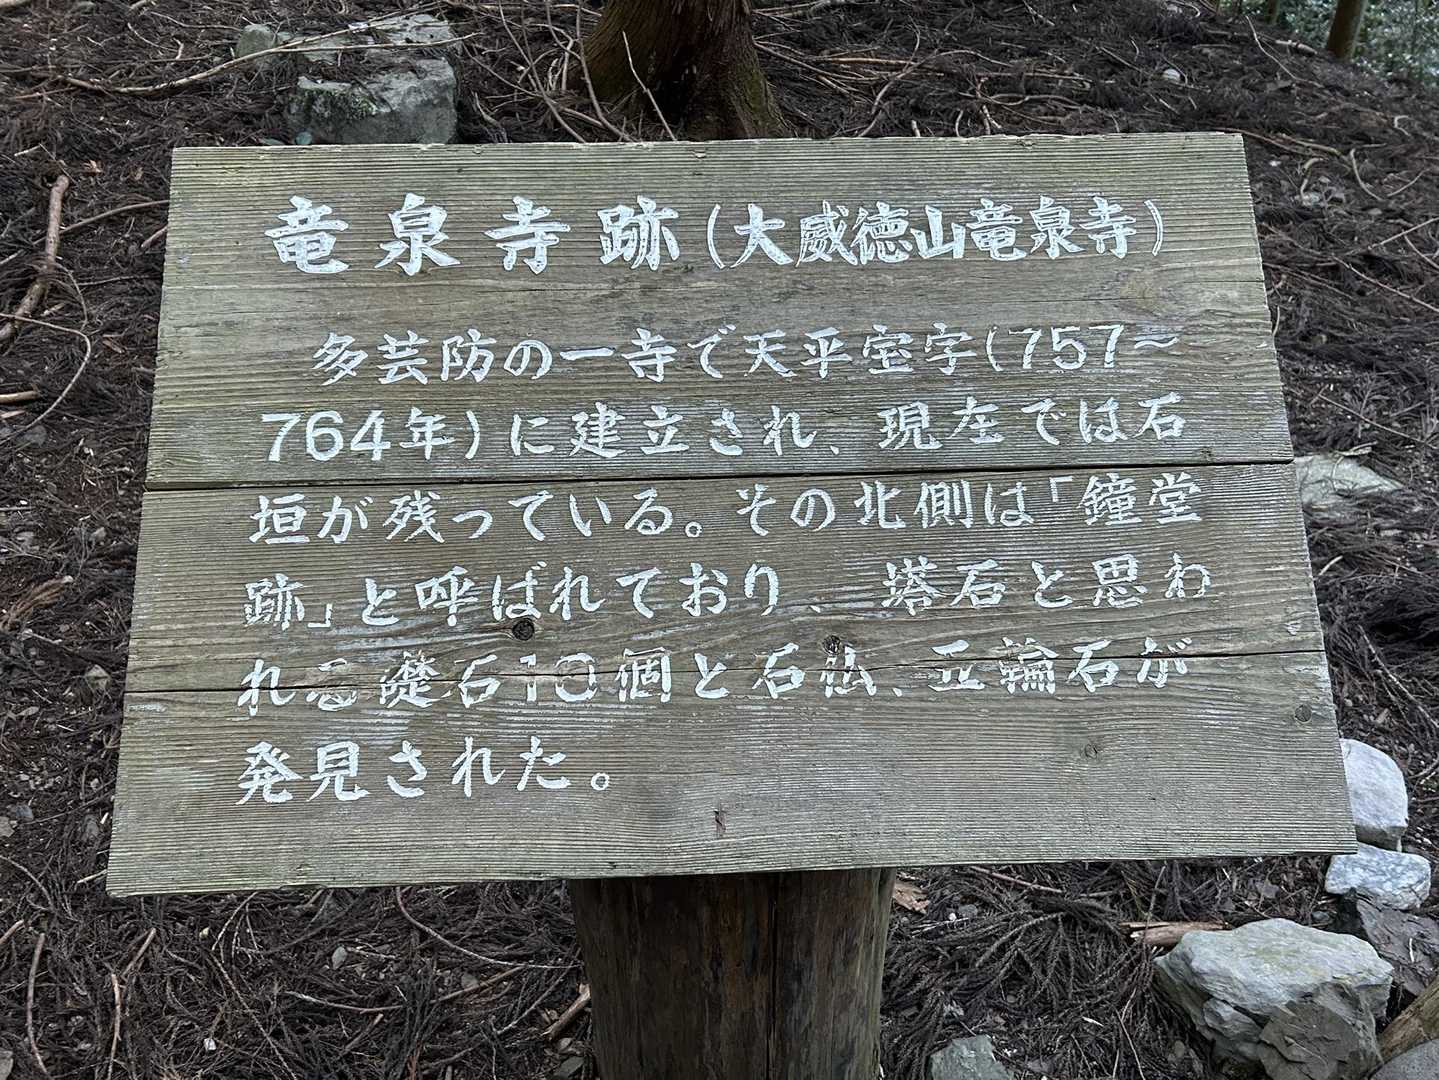 竜泉寺跡(大威徳山竜泉寺)
多芸防の一寺で天平宝字(757～
764年)に建立され、現在では石
垣が残っている。その北側は「鐘堂
跡」と呼ばれており、塔石と思わ
れる礎石10個と石仏、五輪石が
発見された。